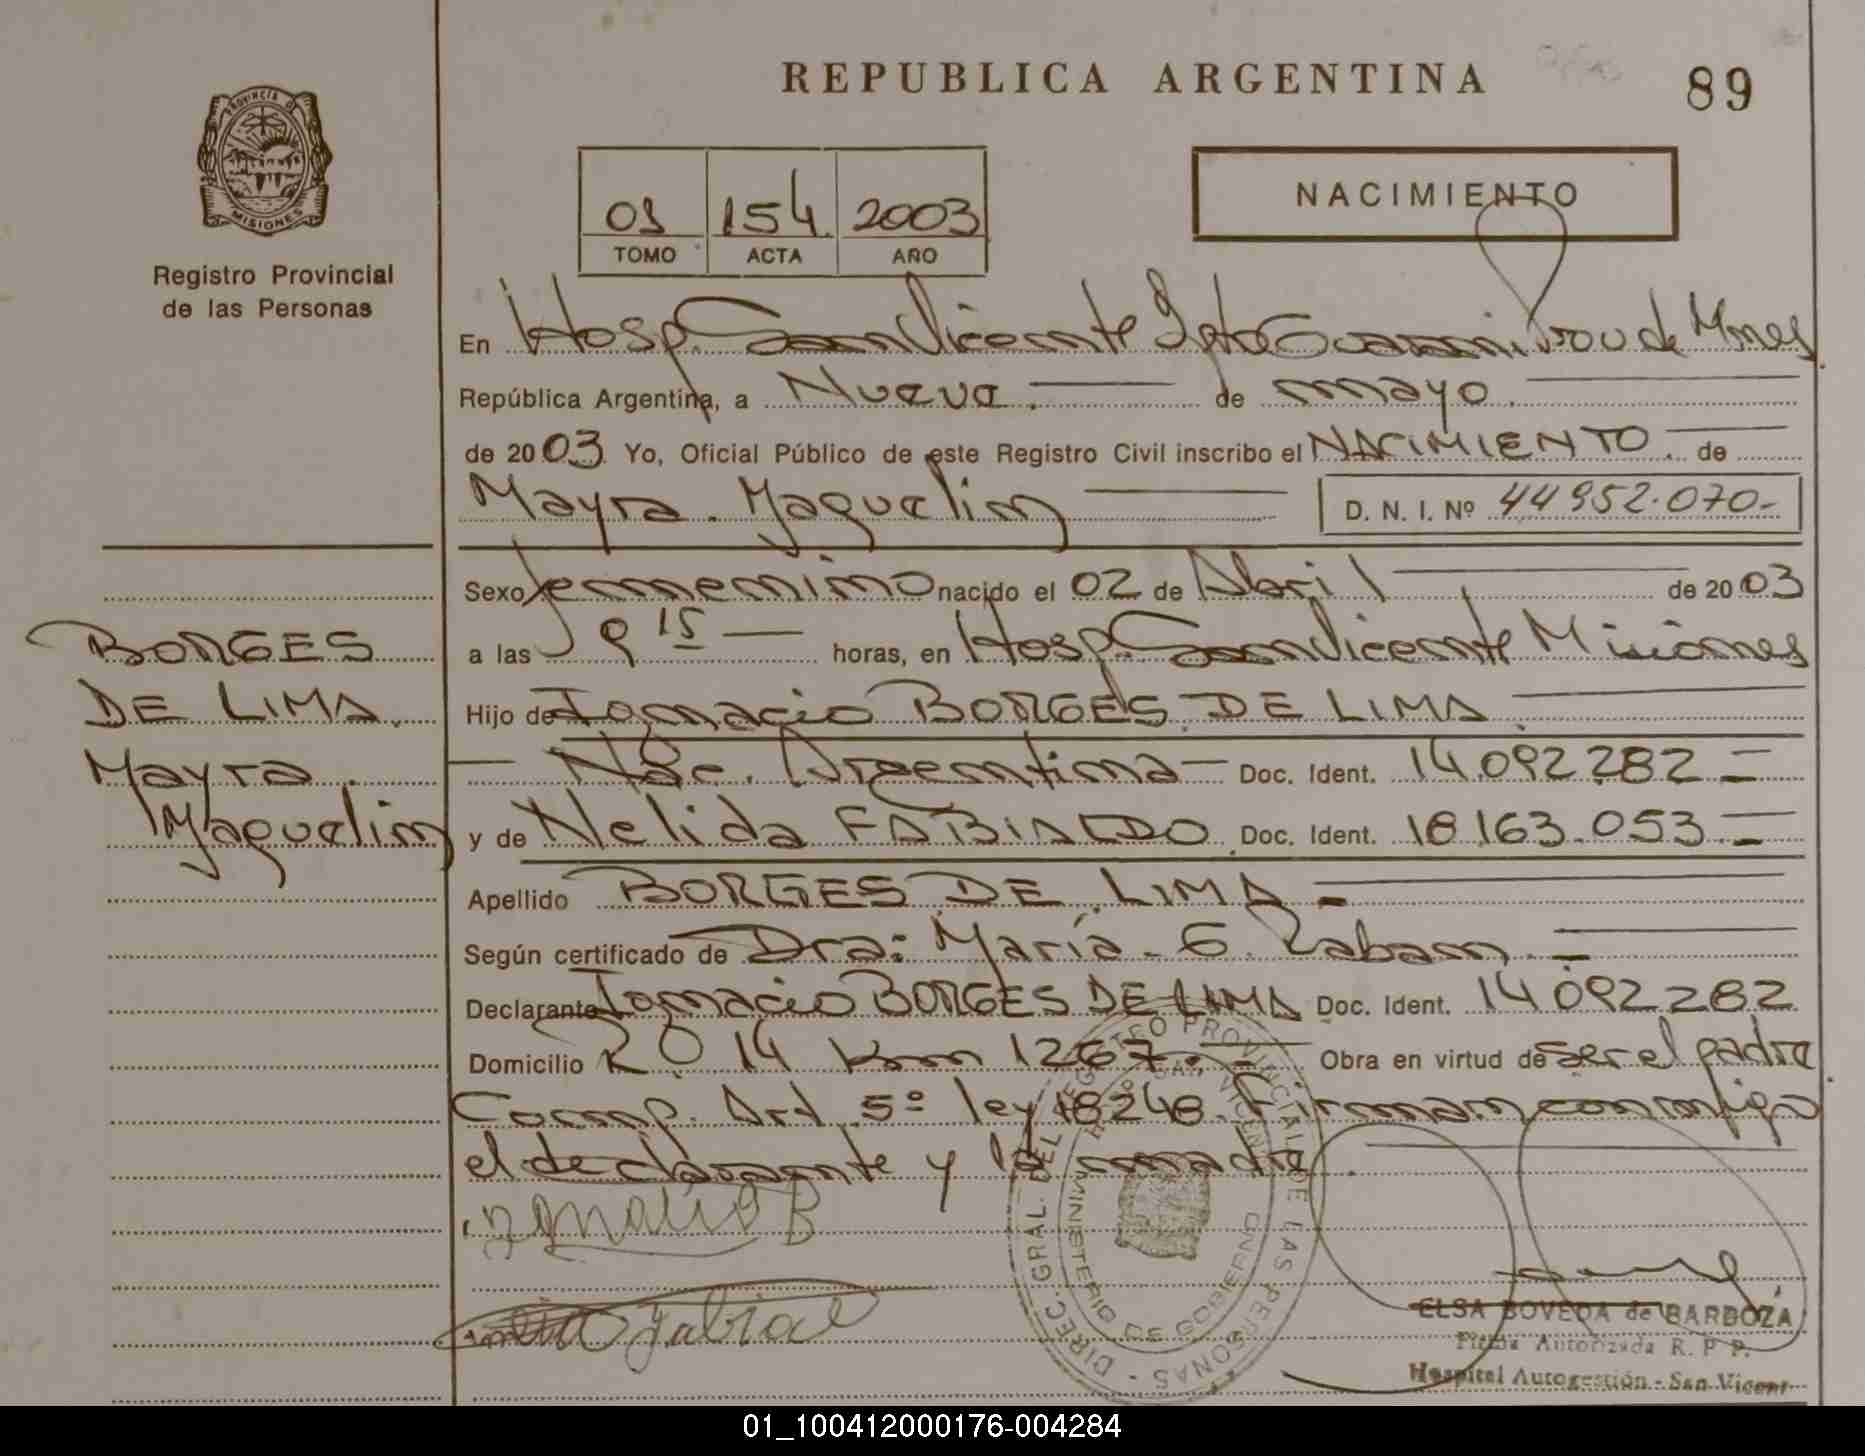 PROVINCIA D
MISIONES
Registro Provincial
de las Personas
REPUBLICA ARGENTINA
89
01 154 2003
TOMO ACTA AÑO
NACIMIENTO
En Hosp. San Vicente Dpto Guarani Prov de Mnes
República Argentina, a Nueve de mayo
de 2003 Yo, Oficial Público de este Registro Civil inscribo el NACIMIENTO de
Mayra Yaquelin
D. N. I. Nº 44 952.070-
Sexo femenino nacido el 02 de Abril de 2003
a las 9 15 horas, en Hosp. San Vicente Misiones
Hijo de Ignacio BORGES DE LIMA
Nac. Argentina Doc. Ident. 14.092 282
y de Nelida Doc. Ident. 18.163.053
Apellido BORGES DE LIMA
Según certificado de Dra: María E. Zaban
Declarante Ignacio BORGES DE LIMA Doc. Ident. 14 092 282
Domicilio R 14 Km 1267. Obra en virtud de ser el padre
Comp. Art 5º ley 18248. Firman conmigo
el declarante y la madre.
BORGES
DE LIMA
Mayra
Yaquelin
Ignacio B
DIREC. GRAL. DEL REGISTRO PROVINCIAL DE LAS PERSONAS
MINISTERIO DE GOBIERNO
ELSA BOVEDA de BARBOZA
Firma Autorizada R. P. P.
Hospital Autogestión - San Vicent
01_100412000176-004284